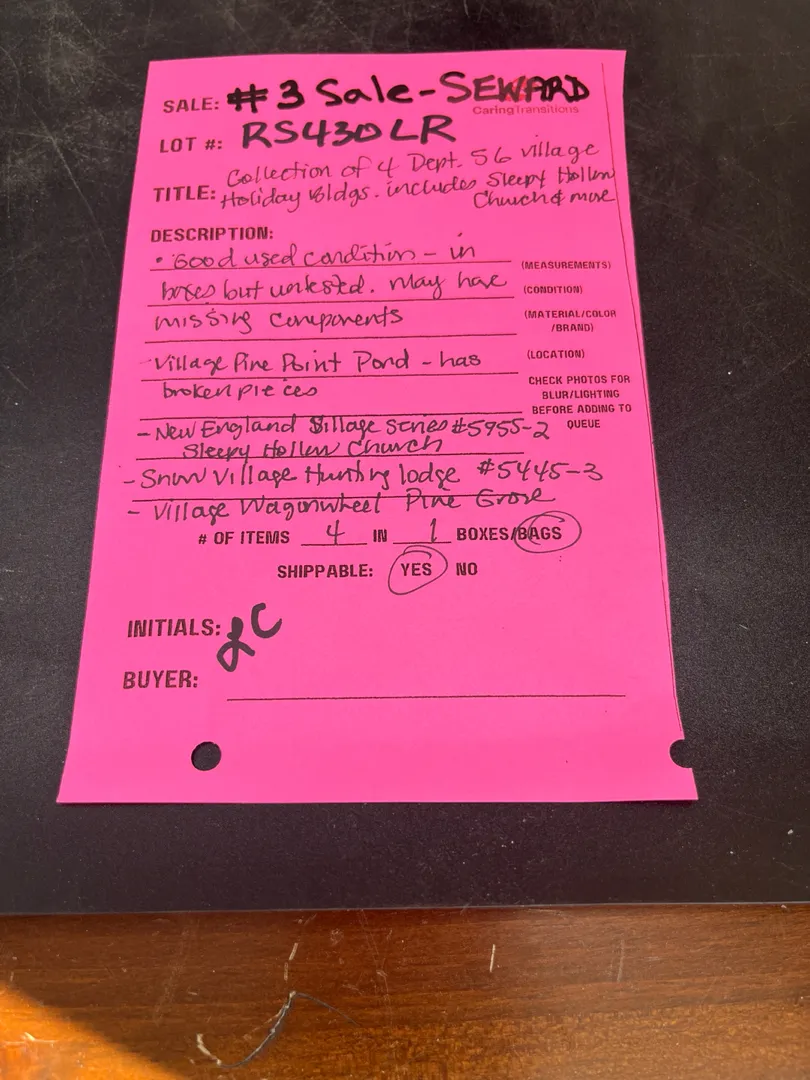 SALE: #3 Sale-SEWARD
CaringTransitions
LOT #: RS430LR
TITLE: Collection of 4 Dept. 56 village
Holiday Bldgs. includes Sleepy Hollow
Church & more
DESCRIPTION:
• Good used condition - in
(MEASUREMENTS)
boxes but untested. May have
(CONDITION)
missing components
(MATERIAL/COLOR
/BRAND)
- Village Pine Point Pond - has
(LOCATION)
broken pieces
CHECK PHOTOS FOR
BLUR/LIGHTING
BEFORE ADDING TO
QUEUE
- New England Village Series #5955-2
Sleepy Hollow Church
- Snow Village Hunting lodge #5445-3
- Village Wagonwheel Pine Grove
# OF ITEMS 4 IN 1 BOXES/BAGS
SHIPPABLE: YES NO
INITIALS: LC
BUYER: